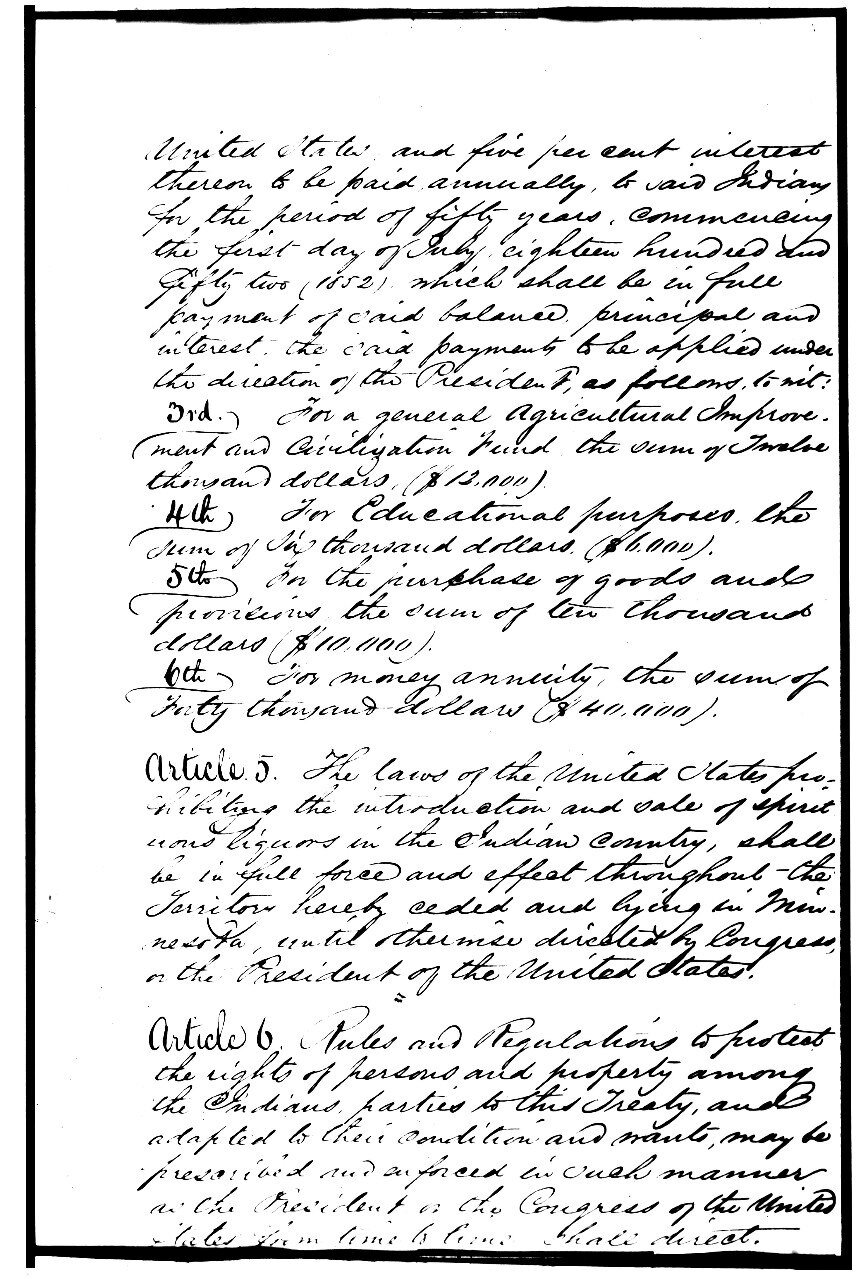 United States, and five per cent interest
thereon to be paid, annually, to said Indians
for the period of fifty years, commencing
the first day of July, eighteen hundred and
fifty two (1852), which shall be in full
payment of said balance, principal and
interest, the said payments to be applied under
the direction of the President, as follows, to wit:
3rd. For a general Agricultural Improve-
ment and Civilization Fund, the sum of Twelve
thousand dollars, ($12,000).
4th For Educational purposes, the
sum of Six thousand dollars, ($6,000).
5th For the purchase of goods and
provisions, the sum of ten thousand
dollars ($10,000).
6th For money annuity, the sum of
Forty thousand dollars ($40,000).
Article 5. The laws of the United States pro-
hibiting the introduction and sale of spirit
uous liquors in the Indian Country, shall
be in full force and effect throughout the
Territory hereby ceded and lying in Min-
nesota, until otherwise directed by Congress,
or the President of the United States.
Article 6. Rules and Regulations to protect
the rights of persons and property among
the Indians, parties to this Treaty, and
adapted to their condition and wants, may be
prescribed and enforced in such manner
as the President or the Congress of the United
States from time to time shall direct.